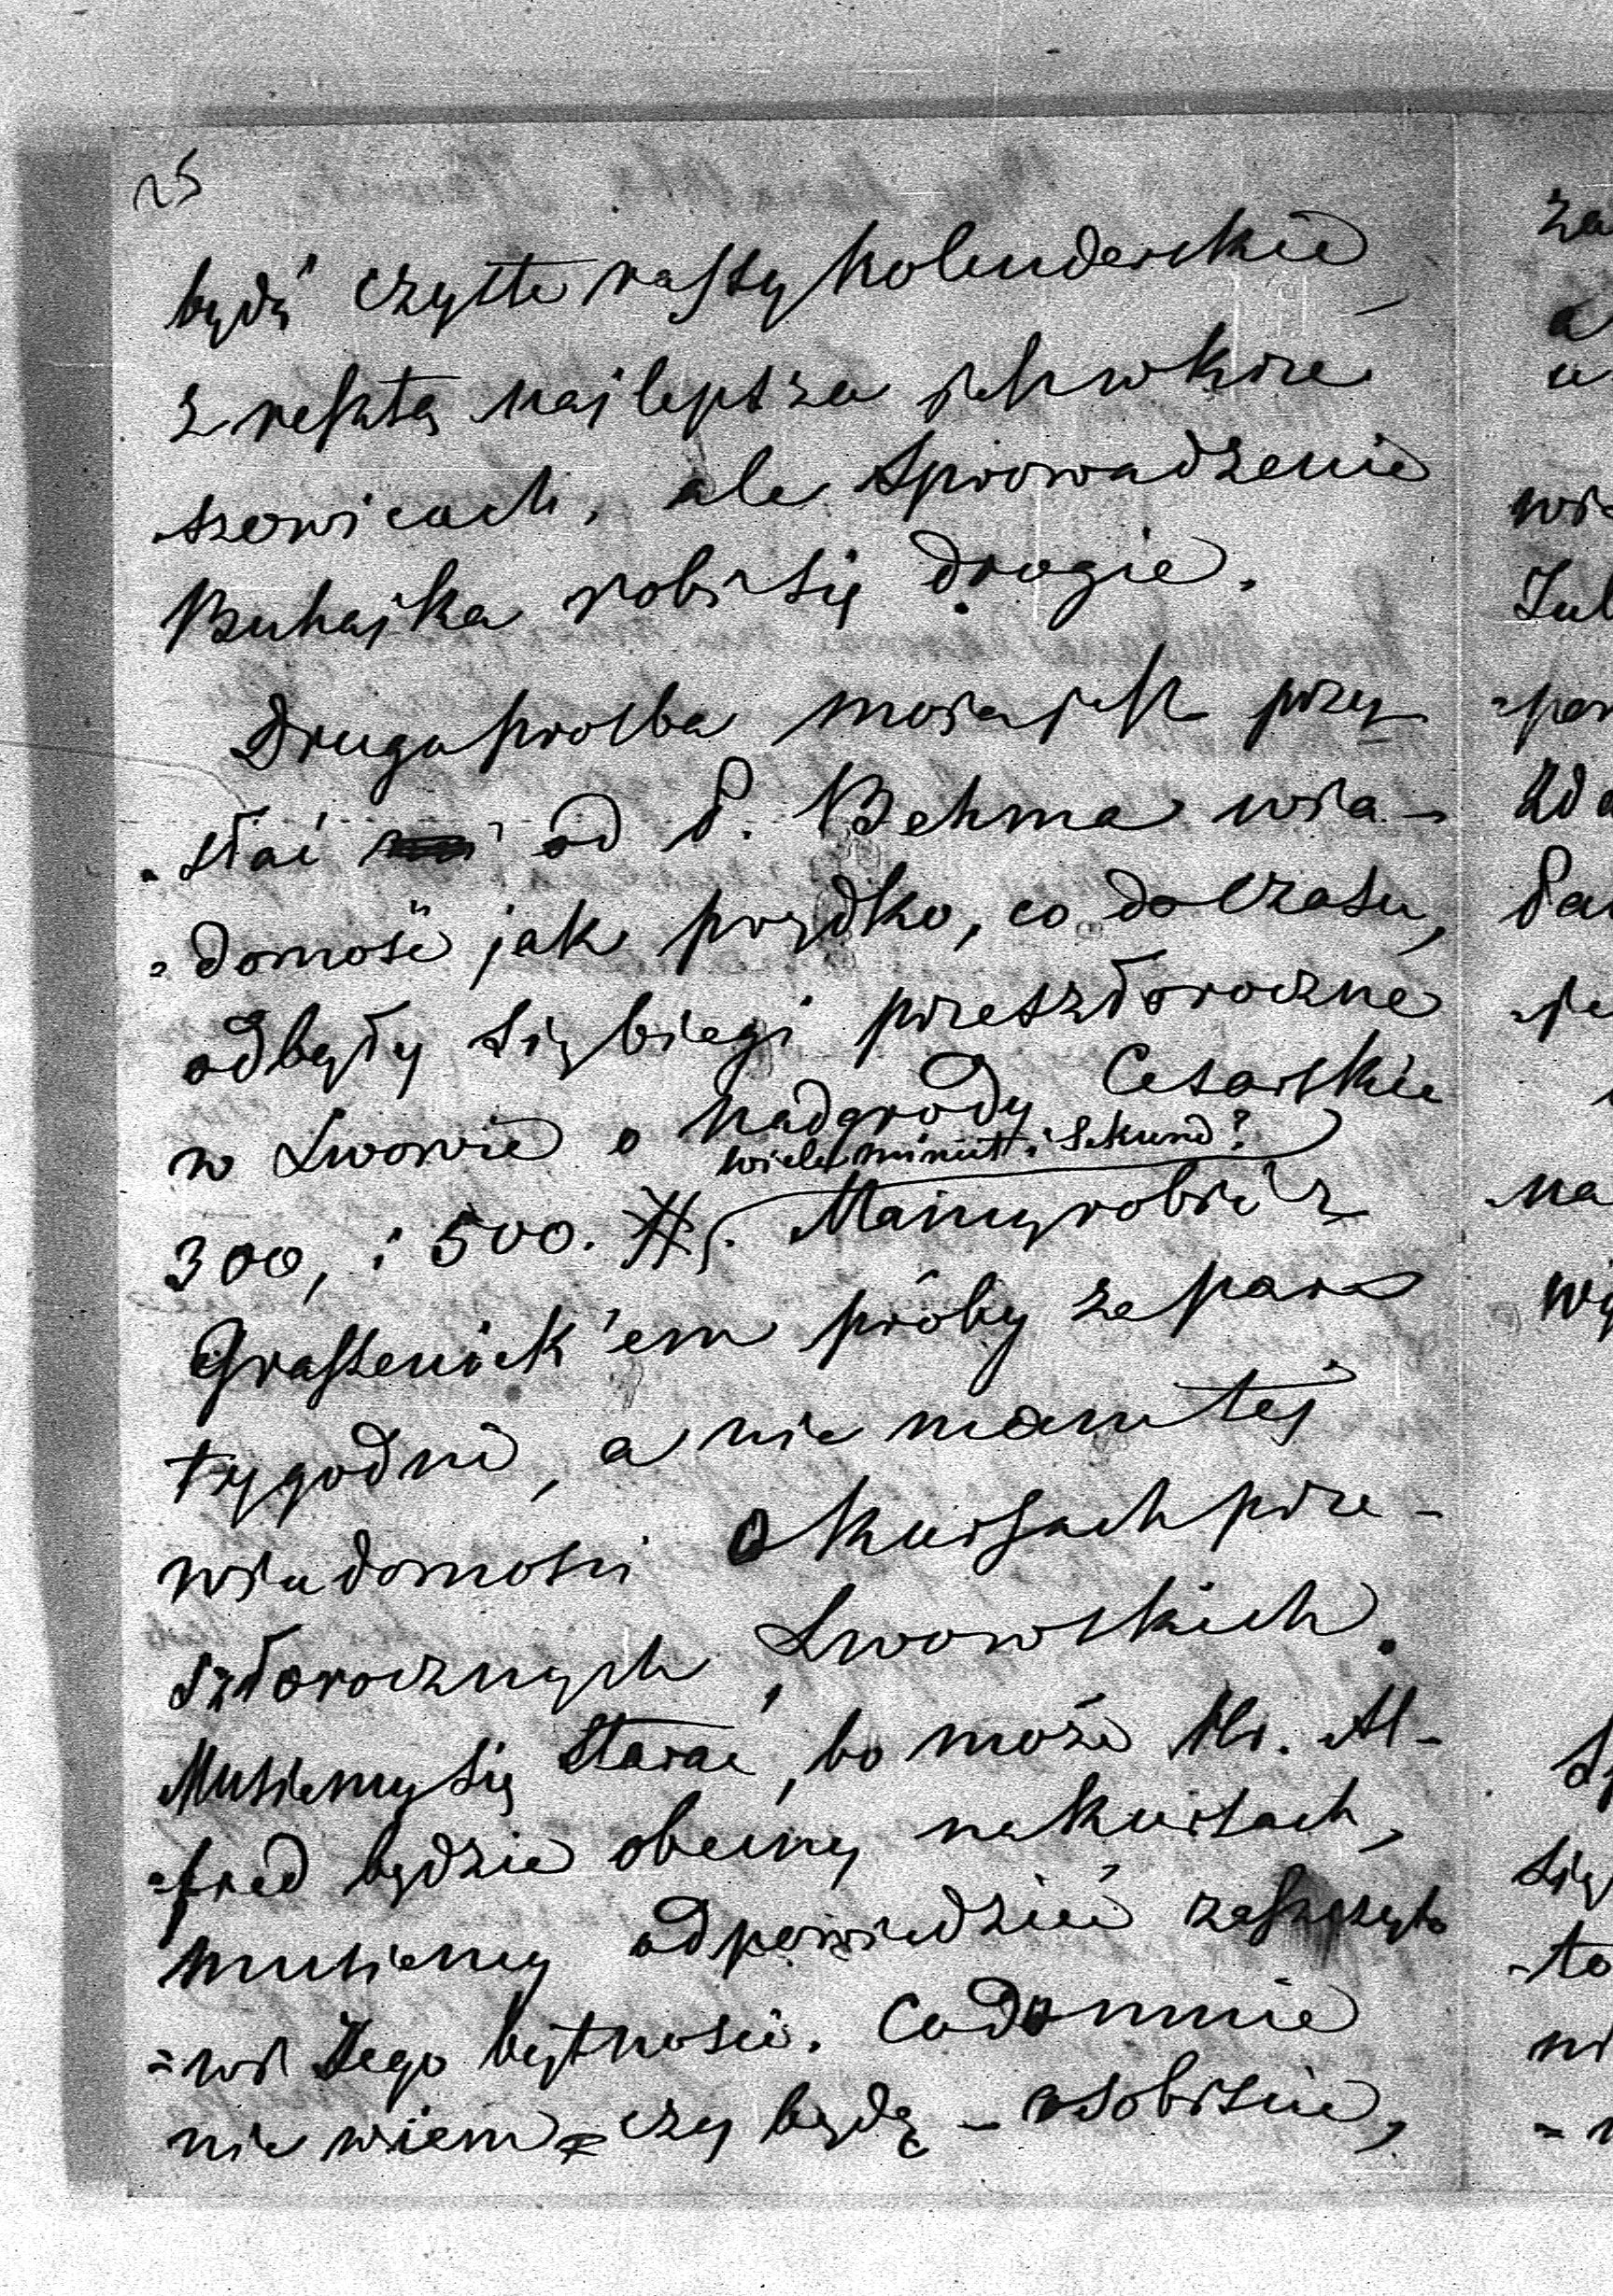 25
bądź czyste rassy holenderskie,
zresztą najlepsza jest w Krze-
szowicach, ale sprowadzenie
Buhajka robi się drogie.
Druga prośba moja jest przy-
-słać od P. Behma wia-
=domość jak prędko, co do czasu,
odbyły się biegi przeszłoroczne
w Lwowie o nadgrody Cesarskie
wiele minut i sekund?
300, i 500. #. Mamy robić z
Grassenick'em próby za parę
tygodni, a nie mam tej
wiadomości o kursach prze-
szłorocznych, Lwowskich.
Musiemy się starać, bo może Hr. Al-
=fred będzie obecny na kursach,
musiemy odpowiedzieć zaszczyto
=wi Jego bytności. Co do mnie
nie wiem czy będę - osobiście,